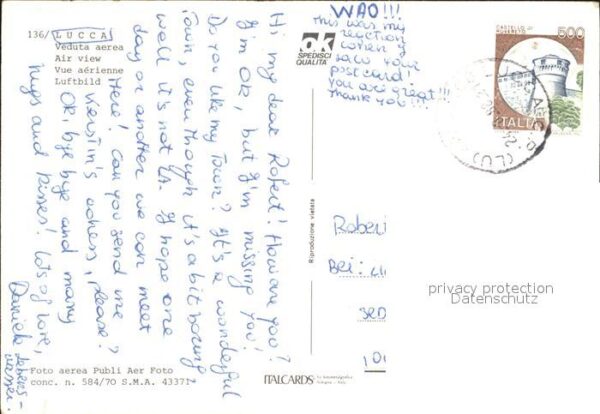 136/ LUCCA
Veduta aerea
Air view
Vue aérienne
Luftbild
Hi my dear Robert! How are you?
I'm OK, but I'm missing you!
Do you like my Town? It's a wonderful
Town, even though it's a bit boring,
well it's not LA. I hope one
day or another we can meet
Here! Can you send me
Kerstin's adress, please?
OK, bye bye and many
hugs and kisses! Lots of love,
Daniele
Foto aerea Publi Aer Foto
conc. n. 584/70 S.M.A. 43371
ok
SPEDISCI
QUALITÀ
Riproduzione vietata
ITALCARDS
bologna - italy
WAO!!!
this was my
reaction
when I
saw your
postcard!
You are great!!!
Thank you!!!
CASTELLO DI
ROVERETO
500
ITALIA
(LU)
Robert
Bei:
privacy protection
Datenschutz